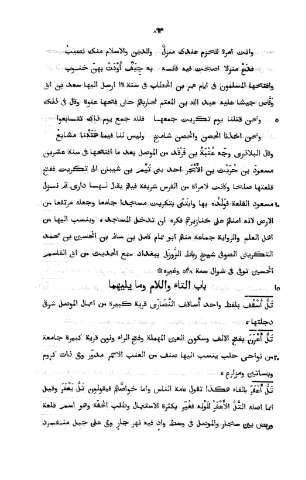 ٨٦٣
وانت امرؤ للحزم عندك منزل وللدين والاسلام منك نصيب
فدع منزلا اصبحت فيه فانه به جِيَف أَوْدَتْ بهن خطوب
وافتتحها المسلمون في ايام عمر بن الخطاب في سنة ١٦ ارسل اليها سعد بن ابي
وقاص جيشا عليه عبد الله بن المعتم فحاربهم حتى فتحها عنوة وقال في ذلك
ونحن قتلنا يوم تكريت جمعها فلله جمع يوم ذاك تتابعوا
ونحن اخذنا الحصن والحصن شامخ وليس لنا فيما هتكنا مشايع
وقال البلاذري وجه عُتْبة بن فرقد من الموصل بعد ما افتتحها في سنة عشرين
مسعود بن حُرَيث بن الأَبْجَر احد بني تَيْم بن شيبان الى تكريت ففتح
قلعتها صلحا وكانت لامرأة من الفرس شريفة فيهم يقال لها دارى ثم نزل
مسعود القلعة فولده بها وابتنى بتكريت مسجدا جامعا وجعله مرتفعا من
الارض لانه امنهم على خنازيرهم فكره ان تدخل المسجد، وينسب اليها من
اهل العلم والرواية جماعة منهم ابو تمام كامل بن سالم بن الحسين بن محمد
التكريتي الصوفي شيخ رباط الزوزني ببغداد سمع الحديث من ابي القاسم
الحسين توفي في شوال سنة ٥٤٨ وغيره
باب التاء واللام وما يليهما
تَلُّ أَسْقُف بلفظ واحد أساقف النصارى قرية كبيرة من اعمال الموصل شرقي
دجلتها
تَلُّ أَعْرَن بفتح الالف وسكون العين المهملة وفتح الراء ونون قرية كبيرة جامعة
من نواحي حلب ينسب اليها صنف من العنب الاحمر مدوّر وفي ذات كروم
وبساتين ومزارع
تَلُّ أَعْفَر بالفاء هكذا تقول عامة الناس واما خواصهم فيقولون تل يَعْفَر وقيل
انما اصله التَّلُّ الأَعْفَر للونه فغير بكثرة الاستعمال وطلب الخفة وهو اسم قلعة
وربض بين سنجار والموصل في وسط واد فيه نهر جار وفي على جبل منفرد